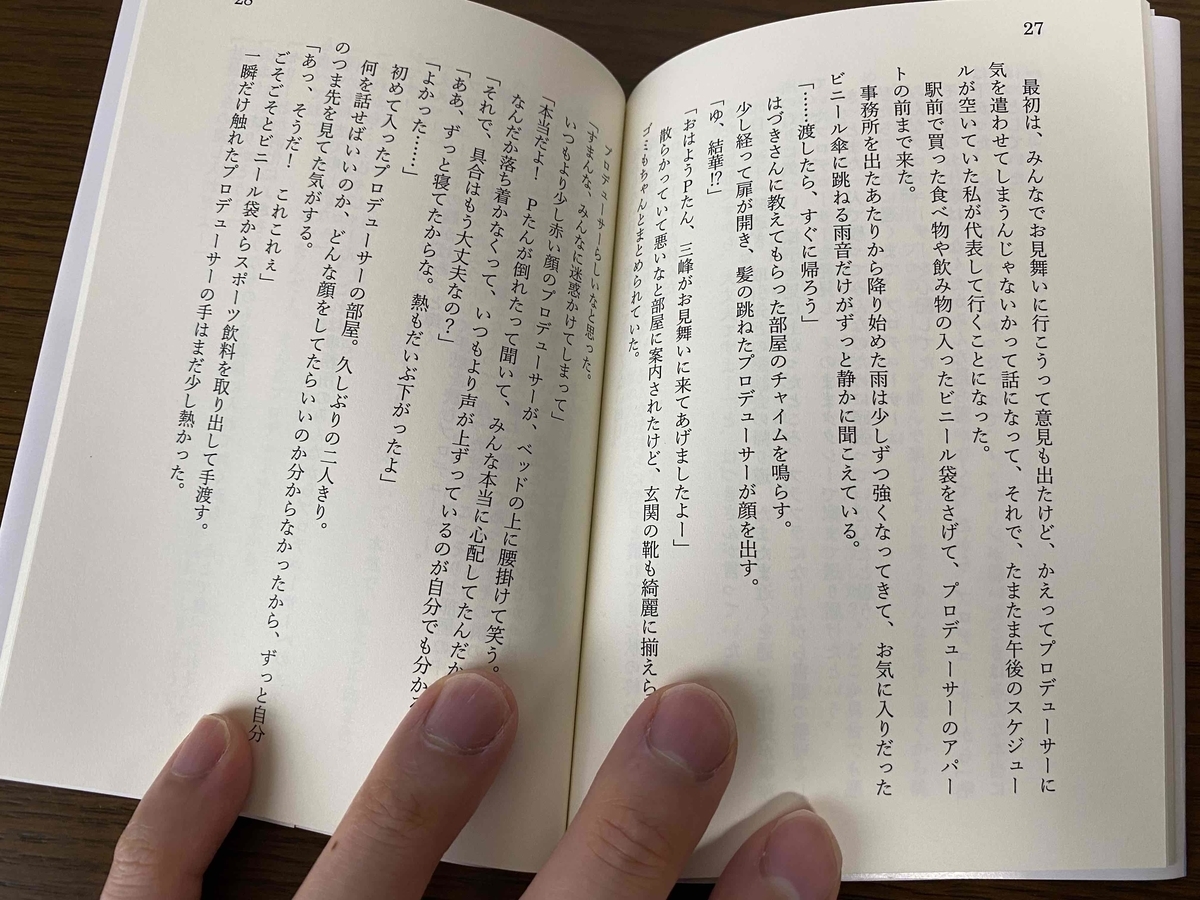 27
最初は、みんなでお見舞いに行こうって意見も出たけど、かえってプロデューサーに
気を遣わせてしまうんじゃないかって話になって、それで、たまたま午後のスケジュー
ルが空いていた私が代表して行くことになった。
駅前で買った食べ物や飲み物の入ったビニール袋をさげて、プロデューサーのアパー
トの前まで来た。
事務所を出たあたりから降り始めた雨は少しずつ強くなってきて、お気に入りだった
ビニール傘に跳ねる雨音だけがずっと静かに聞こえている。
「……渡したら、すぐに帰ろう」
はづきさんに教えてもらった部屋のチャイムを鳴らす。
少し経って扉が開き、髪の跳ねたプロデューサーが顔を出す。
「ゆ、結華⁉」
「おはようPたん、三峰がお見舞いに来てあげましたよー」
散らかっていて悪いなと部屋に案内されたけど、玄関の靴も綺麗に揃えら
ゴミもちゃんとまとめられていた。
28
プロデューサーらしいなと思った。
「すまんな、みんなに迷惑かけてしまって」
いつもより少し赤い顔のプロデューサーが、ベッドの上に腰掛けて笑う。
「本当だよ！　Pたんが倒れたって聞いて、みんな本当に心配してたんだか
なんだか落ち着かなくって、いつもより声が上ずっているのが自分でも分か
「それで、具合はもう大丈夫なの？」
「ああ、ずっと寝てたからな。熱もだいぶ下がったよ」
「よかった……」
初めて入ったプロデューサーの部屋。久しぶりの二人きり。
何を話せばいいのか、どんな顔をしてたらいいのか分からなかったから、ずっと自分
のつま先を見てた気がする。
「あっ、そうだ！　これこれぇ」
ごそごそとビニール袋からスポーツ飲料を取り出して手渡す。
一瞬だけ触れたプロデューサーの手はまだ少し熱かった。